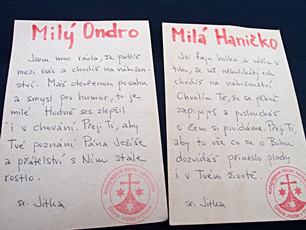 Milý Ondro
Jsem moc ráda, že patříš
mezi nás a chodíš na nábožen-
ství. Máš otevřenou povahu
a smysl pro humor, to je
milé. Hodně ses zlepšil
i v chování. Přeji Ti, aby
Tvé poznání Pána Ježíše
a přátelství s Ním stále
rostlo.
sr. Jitka
Milá Haničko
Jsi fajn holka a vážím si
toho, že už několikátý rok
chodíš na náboženství
Chválím Tě, že se pěkně
zapojuješ a posloucháš
o čem si povídáme. Přeji Ti,
aby to vše co se o Bohu
dozvídáš přineslo plody
i v Tvém životě.
sr. Jitka